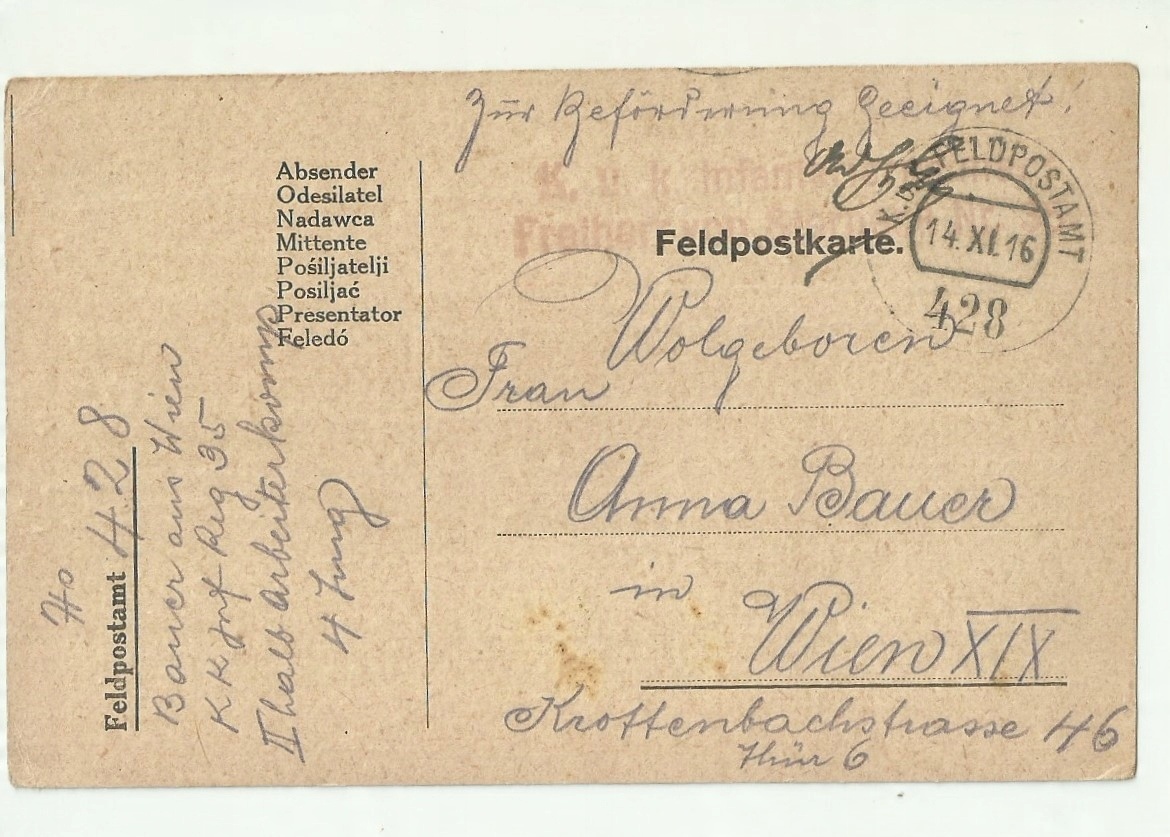 Zur Beförderung Geeignet!
K. u. k.
K.u.K. FELDPOSTAMT
14.XI.16
428
Feldpostkarte.
Absender
Odesilatel
Nadawca
Mittente
Pošiljatelji
Posiljać
Presentator
Feledó
Wolgeboren
Frau
Anna Bauer
in
Wien XIX
Krottenbachstrasse 46
Thür 6
Feldpostamt 428
Bauer aus Wien
KK Inf Reg 35
II halb Arbeiterkomp
4 Zung